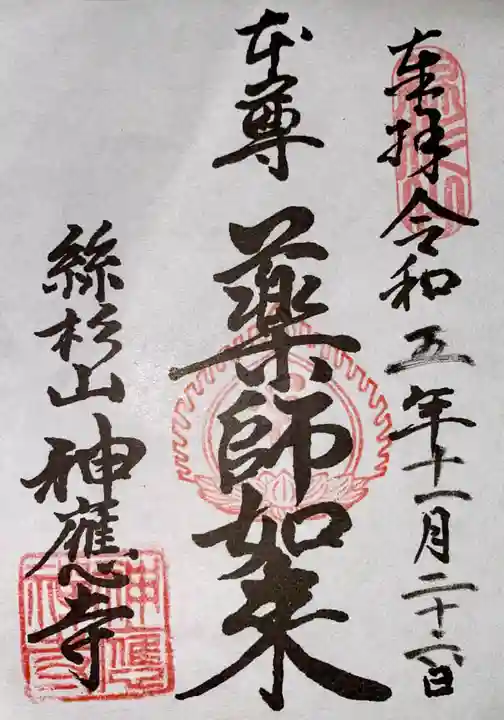 奉拝 令和五年十一月二十六日
本尊 薬師如来
絲杉山 神應寺